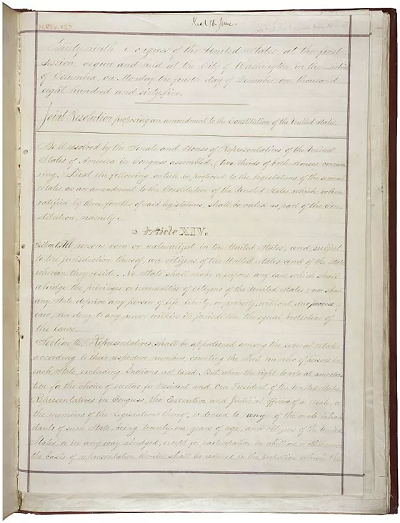 Rec'd 16 June
Thirty-ninth Congress of the United States, at the first
session, begun and held at the City of Washington, in the District
of Columbia, on Monday the fourth day of December, one thousand
eight hundred and sixty-five.
Joint Resolution proposing an amendment to the Constitution of the United States.
Be it resolved by the Senate and House of Representatives of the United
States of America in Congress assembled, (two-thirds of both Houses concur-
ring,) That the following article be proposed to the legislatures of the several
States as an amendment to the Constitution of the United States, which, when
ratified by three-fourths of said legislatures, shall be valid as part of the Con-
stitution, namely:
Article XIV.
Section 1. All persons born or naturalized in the United States, and subject
to the jurisdiction thereof, are citizens of the United States and of the State
wherein they reside. No State shall make or enforce any law which shall
abridge the privileges or immunities of citizens of the United States; nor shall
any State deprive any person of life, liberty, or property, without due process of
law; nor deny to any person within its jurisdiction the equal protection of
the laws.
Section 2. Representatives shall be apportioned among the several States
according to their respective numbers, counting the whole number of persons in
each State, excluding Indians not taxed. But when the right to vote at any elec-
tion for the choice of electors for President and Vice President of the United States,
Representatives in Congress, the Executive and Judicial officers of a State, or
the members of the legislature thereof, is denied to any of the male inhabi-
tants of such State, being twenty-one years of age, and citizens of the United
States, or in any way abridged, except for participation in rebellion or other crime,
the basis of representation therein shall be reduced in the proportion which the